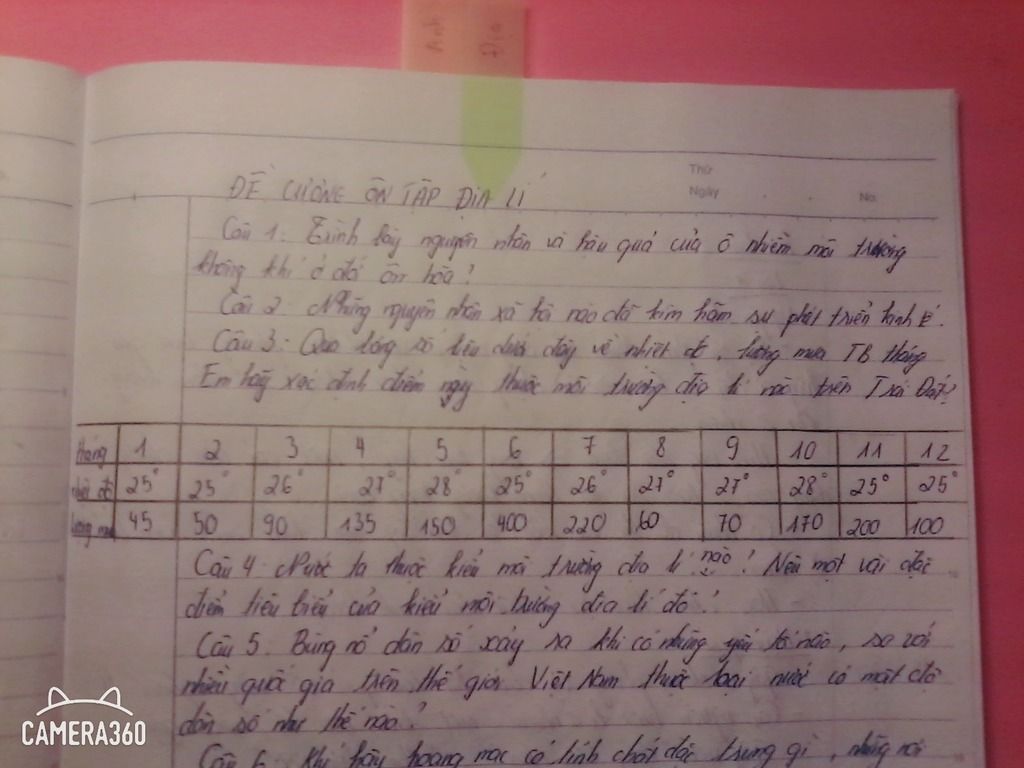 Anh
Địa
Thứ
Ngày
No.
ĐỀ CƯƠNG ÔN TẬP ĐỊA LÍ
Câu 1: Trình bày nguyên nhân và hậu quả của ô nhiễm môi trường
không khí ở đới ôn hòa?
Câu 2: Những nguyên nhân xã hội nào đã kìm hãm sự phát triển kinh tế.
Câu 3: Qua bảng số liệu dưới đây về nhiệt độ, lượng mưa TB tháng
Em hãy xác định điểm này thuộc môi trường địa lí nào trên Trái Đất?
tháng 1 2 3 4 5 6 7 8 9 10 11 12
nhiệt độ 25° 25° 26° 27° 28° 25° 26° 27° 27° 28° 25° 25°
lượng mưa 45 50 90 135 150 400 220 60 70 170 200 100
Câu 4: Nước ta thuộc kiểu môi trường địa lí nào? Nêu một vài đặc
điểm tiêu biểu của kiểu môi trường địa lí đó?
Câu 5. Bùng nổ dân số xảy ra khi có những yếu tố nào, so với
nhiều quốc gia trên thế giới Việt Nam thuộc loại nước có mật độ
dân số như thế nào?
Câu 6. Khí hậu hoang mạc có tính chất đặc trưng gì, những nơi
CAMERA360